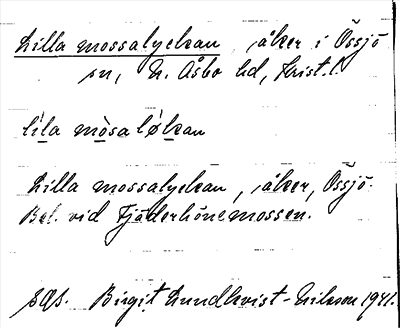 Lilla mossalyckan, åker i Össjö
sn, N. Åsbo hd, Krist. l.
li̱la mo̱saḷøkan
Lilla mossalyckan, åker, Össjö.
Bel. vid Fjäderhönemossen.
SOA. Birgit Lundkvist-Nilsson 1941.